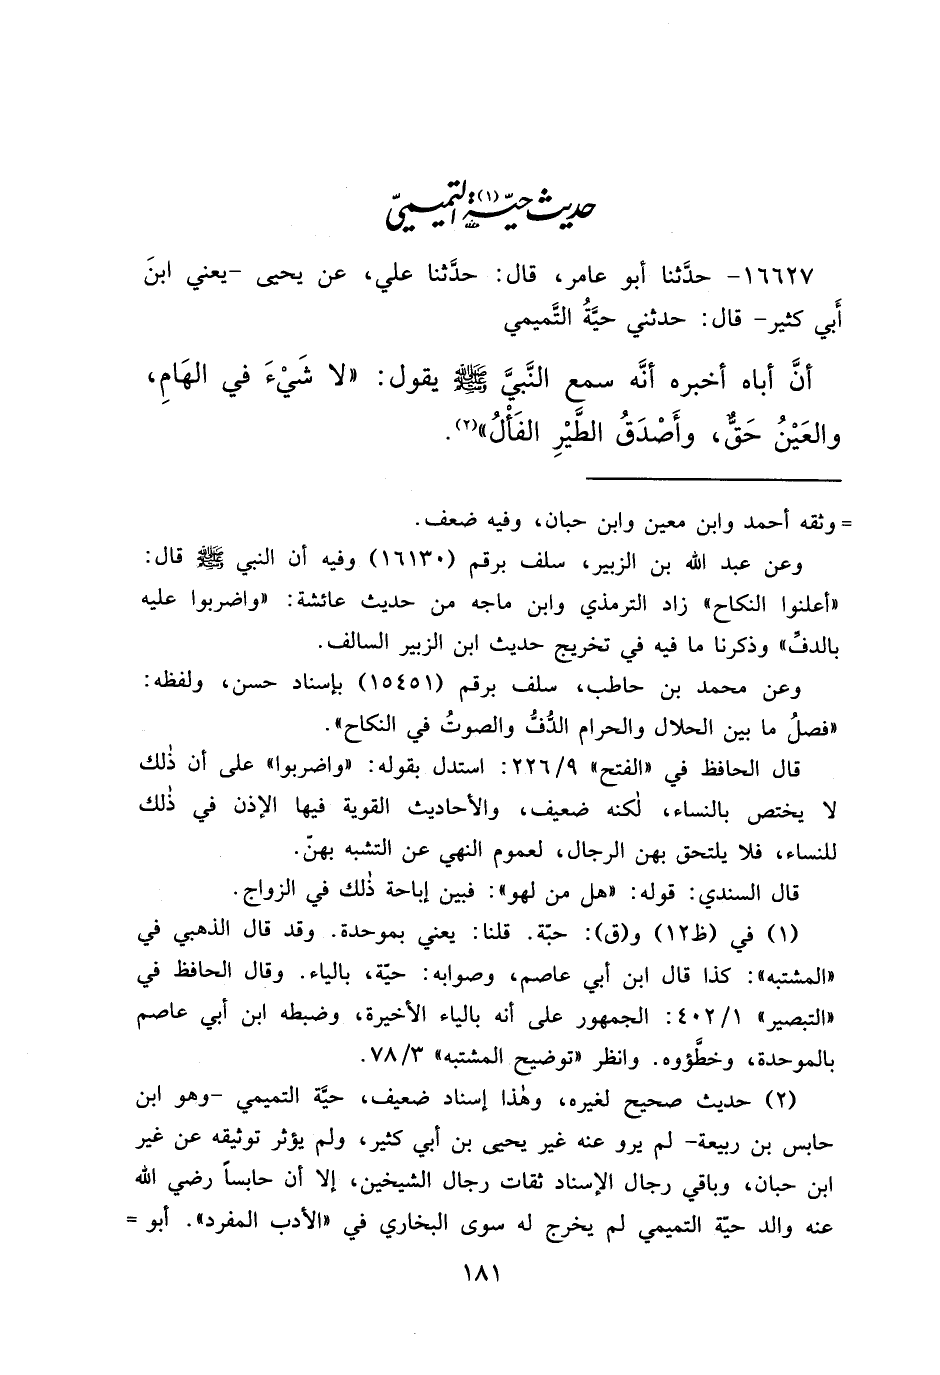 حديث حيّة(١) التميميّ
١٦٦٢٧- حدَّثنا أبو عامر، قال: حدَّثنا علي، عن يحيى -يعني ابنَ
أَبي كثير- قال: حدثني حيَّةُ التَّميمي
أنَّ أباه أخبره أنَّه سمع النَّبيَّ ﷺ يقول: «لا شَيْءَ في الهَامِ،
والعَيْنُ حَقٌّ، وأَصْدَقُ الطَّيْرِ الفَأْلُ»(٢).
= وثقه أحمد وابن معين وابن حبان، وفيه ضعف.
وعن عبد الله بن الزبير، سلف برقم (١٦١٣٠) وفيه أن النبي ﷺ قال:
«أعلنوا النكاح» زاد الترمذي وابن ماجه من حديث عائشة: «واضربوا عليه
بالدفِّ» وذكرنا ما فيه في تخريج حديث ابن الزبير السالف.
وعن محمد بن حاطب، سلف برقم (١٥٤٥١) بإسناد حسن، ولفظه:
«فصلُ ما بين الحلال والحرام الدُّفُّ والصوتُ في النكاح».
قال الحافظ في «الفتح» ٢٢٦/٩: استدل بقوله: «واضربوا» على أن ذٰلك
لا يختص بالنساء، لٰكنه ضعيف، والأحاديث القوية فيها الإذن في ذٰلك
للنساء، فلا يلتحق بهن الرجال، لعموم النهي عن التشبه بهنّ.
قال السندي: قوله: «هل من لهو»: فبين إباحة ذٰلك في الزواج.
(١) في (ظ١٢) و(ق): حبّة. قلنا: يعني بموحدة. وقد قال الذهبي في
«المشتبه»: كذا قال ابن أبي عاصم، وصوابه: حيّة، بالياء. وقال الحافظ في
«التبصير» ٤٠٢/١: الجمهور على أنه بالياء الأخيرة، وضبطه ابن أبي عاصم
بالموحدة، وخطَّؤوه. وانظر «توضيح المشتبه» ٧٨/٣.
(٢) حديث صحيح لغيره، وهٰذا إسناد ضعيف، حيَّة التميمي -وهو ابن
حابس بن ربيعة- لم يرو عنه غير يحيى بن أبي كثير، ولم يؤثر توثيقه عن غير
ابن حبان، وباقي رجال الإسناد ثقات رجال الشيخين، إلا أن حابساً رضي الله
عنه والد حيّة التميمي لم يخرج له سوى البخاري في «الأدب المفرد». أبو =
١٨١